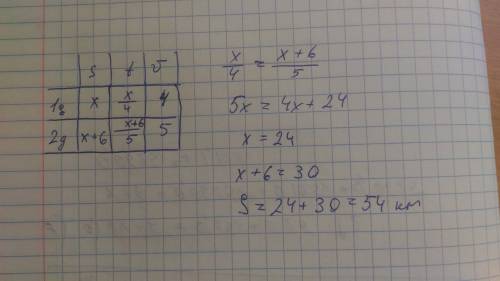 S t v
1g x x/4 4
2g x+6 x+6/5 5
x/4 = x+6/5
5x = 4x + 24
x = 24
x+6 = 30
S = 24 + 30 = 54 км